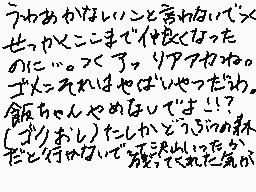 うわあかないハンと言わないで×
せっかくここまで仲良くなった
のに…。つくろっ リアアカね。
ゴメンそれはやばいやつだわ。
飯ちゃんやめないでよ!!?
(ゴリおし)たしかどうぶつの森
だと行かないでって沢山いったら
残ってくれた気が